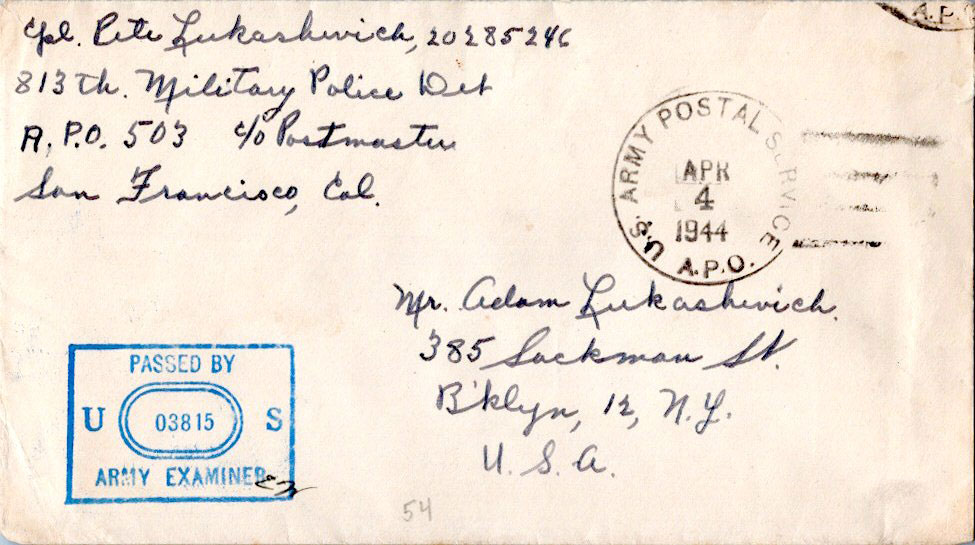 Cpl. Pete Lukashevich, 20285246
813th. Military Police Det
A.P.O. 503 c/o Postmaster
San Francisco, Cal.
A.P.O.
U.S. ARMY POSTAL SERVICE
APR
4
1944
A.P.O.
Mr. Adam Lukashevich.
385 Sackman St.
B'klyn, 12, N.Y.
U. S. A.
PASSED BY
U 03815 S
ARMY EXAMINER
54